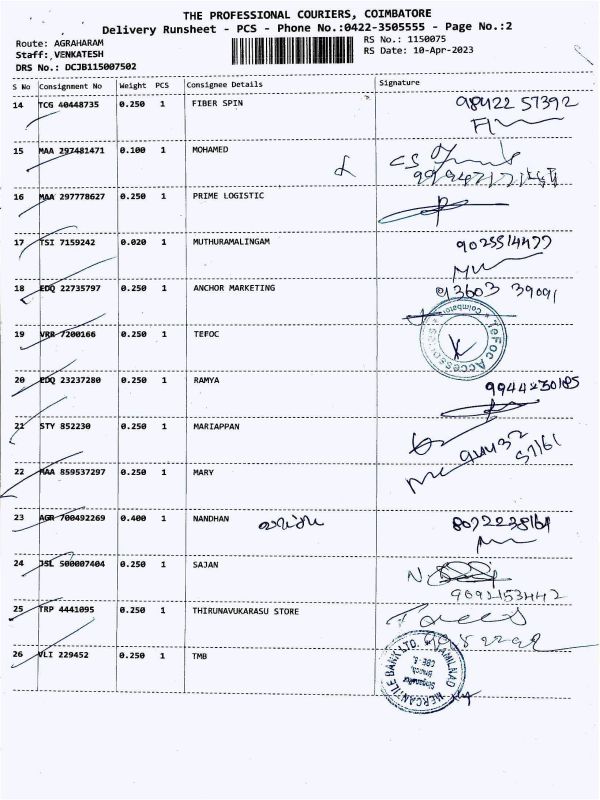 THE PROFESSIONAL COURIERS, COIMBATORE
Delivery Runsheet - PCS - Phone No.:0422-3505555 - Page No.:2
Route: AGRAHARAM
RS No.: 1150075
Staff: VENKATESH
RS Date: 10-Apr-2023
DRS No.: DCJB115007502
S No Consignment No Weight PCS Consignee Details Signature
14 TCG 40448735 0.250 1 FIBER SPIN 98422 57392
15 MAA 297481471 0.100 1 MOHAMED
16 MAA 297778627 0.250 1 PRIME LOGISTIC
17 TSI 7159242 0.020 1 MUTHURAMALINGAM 9025514477
18 EDQ 22735797 0.250 1 ANCHOR MARKETING 93603 39091
19 VRR 7200166 0.250 1 TEFOC
TeFoc Accessories * Coimbatore *
20 EDQ 23237280 0.250 1 RAMYA
21 STY 852230 0.250 1 MARIAPPAN
22 MAA 859537297 0.250 1 MARY
23 AGR 700492269 0.400 1 NANDHAN
24 JSL 500007404 0.250 1 SAJAN
9092153442
25 TRP 4441095 0.250 1 THIRUNAVUKARASU STORE
26 VLI 229452 0.250 1 TMB
TAMILNAD MERCANTILE BANK LTD.
Singanallur
Branch,
CBE - 5.